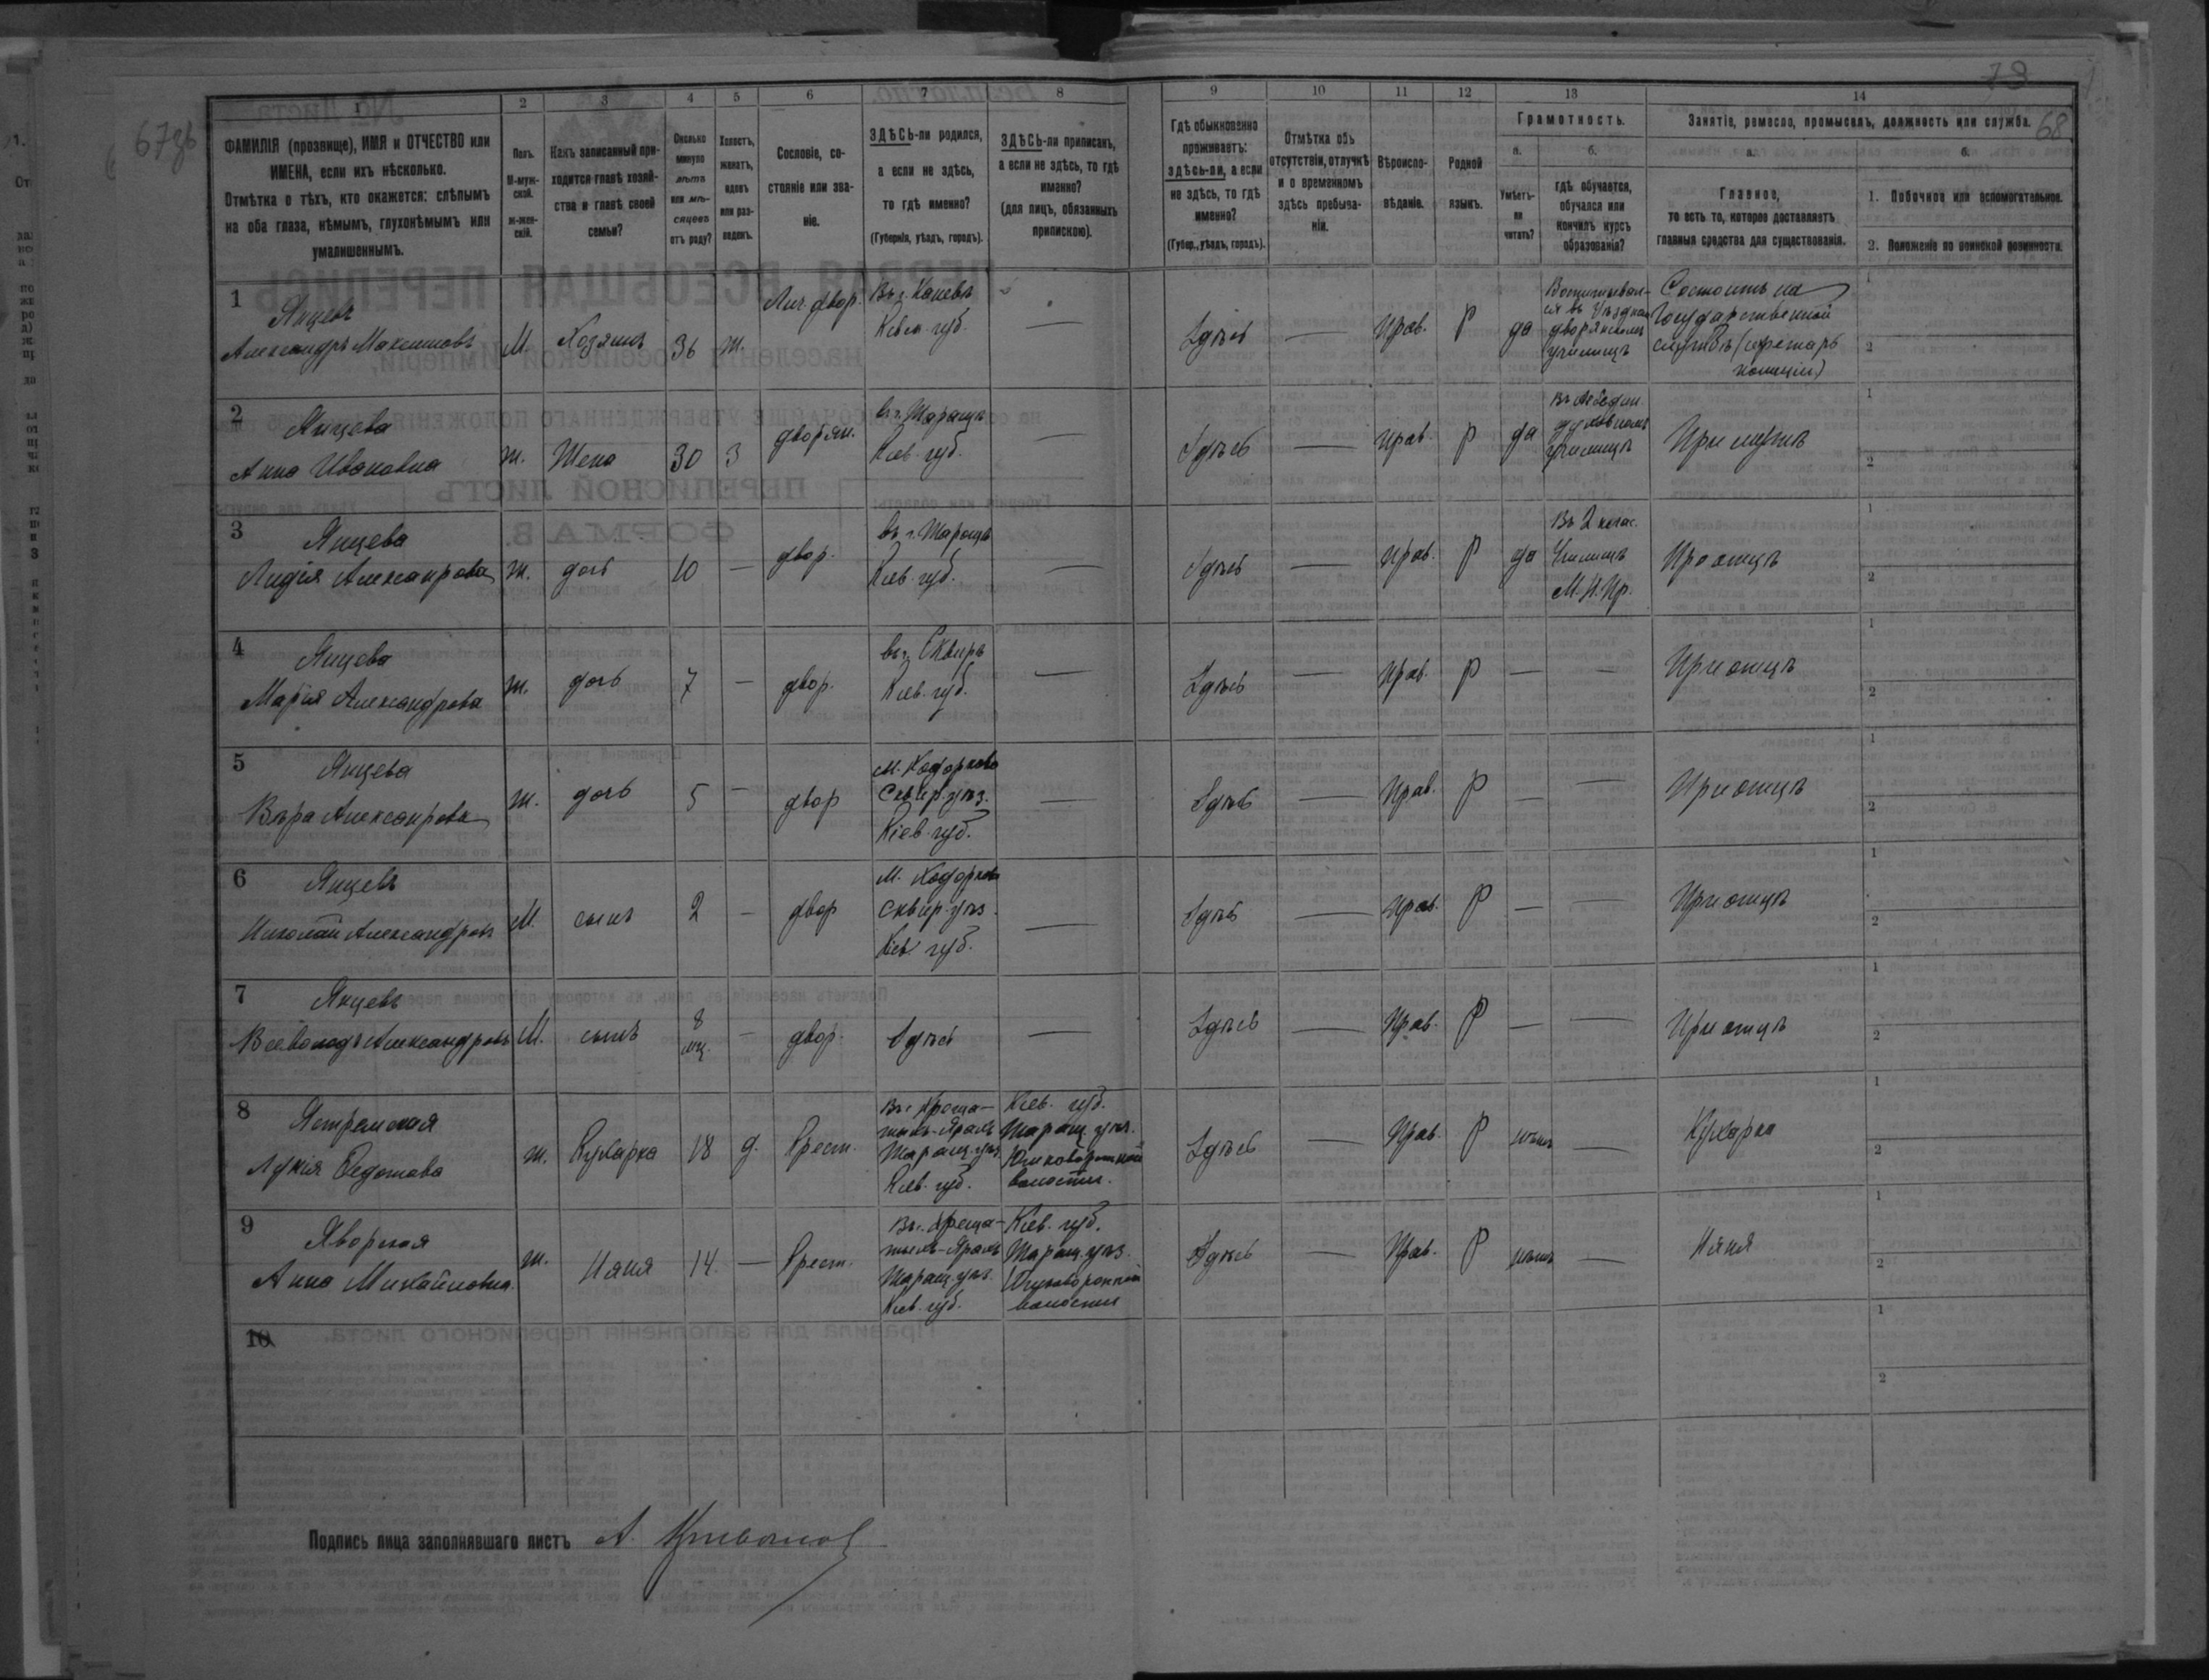 67 зв
73
68
1 2 3 4 5 6 7 8 9 10 11 12 13 14
ФАМИЛІЯ (прозвище), ИМЯ и ОТЧЕСТВО или
ИМЕНА, если ихъ нѣсколько.
Отмѣтка о тѣхъ, кто окажется: слѣпымъ
на оба глаза, нѣмымъ, глухонѣмымъ или
умалишеннымъ.
Полъ.
М-муж-
ской.
ж-жен-
скій.
Какъ записанный при-
ходится главѣ хозяй-
ства и главѣ своей
семьи?
Сколько
минуло
лѣтъ
или мѣ-
сяцевъ
отъ роду?
Холостъ,
женатъ,
вдовъ
или раз-
веденъ.
Сословіе, со-
стояніе или зва-
ніе.
ЗДѢСЬ-ли родился,
а если не здѣсь,
то гдѣ именно?
(Губернія, уѣздъ, городъ).
ЗДѢСЬ-ли приписанъ,
а если не здѣсь, то гдѣ
именно?
(для лицъ, обязанныхъ
припискою).
Гдѣ обыкновенно
проживаетъ:
здѣсь-ли, а если
не здѣсь, то гдѣ
именно?
(Губер., уѣздъ, городъ).
Отмѣтка объ
отсутствіи, отлучкѣ
и о временномъ
здѣсь пребыва-
ніи.
Вѣроиспо-
вѣданіе.
Родной
языкъ.
Грамотность.
а.
Умѣетъ-
ли
читать?
б.
гдѣ обучается,
обучался или
кончилъ курсъ
образованія?
Занятіе, ремесло, промыселъ, должность или служба.
а.
Главное,
то есть то, которое доставляетъ
главныя средства для существованія.
б.
1. Побочное или вспомогательное.
2. Положеніе по воинской повинности.
1 Янцевъ
Александръ Максимовъ М. Хозяинъ 36 ж. Лич. двор. Въ г. Каневѣ
Кіев. губ. — Здѣсь — Прав. Р да Воспитывал-
ся въ Уѣздном
дворянскомъ
училищѣ Состоитъ на
Государственной
службѣ (секретарь
полиціи) 1 2
2 Янцева
Анна Ивановна ж. Жена 30 З дворян. въ г. Таращѣ
Кіев. губ. — Здѣсь — Прав. Р да Въ
духовномъ
училищѣ При мужѣ 1 2
3 Янцева
Лидія Алексанрова ж. дочь 10 — двор. въ г. Таращѣ
Кіев. губ. — Здѣсь — Прав. Р да Въ 2 клас.
Училищѣ
М. Н. Пр. При отцѣ 1 2
4 Янцева
Марія Александрова ж. дочь 7 — двор. въ г. Сквирѣ
Кіев. губ. — Здѣсь — Прав. Р — — При отцѣ 1 2
5 Янцева
Вѣра Алексанрова ж. дочь 5 — двор М. Ходоркова
Сквир. уѣз.
Кіев. губ. — Здѣсь — Прав. Р — — При отцѣ 1 2
6 Янцевъ
Николай Александровъ М. сынъ 2 — двор М. Ходоркова
Сквир. уѣз.
Кіев. губ. — Здѣсь — Прав. Р — — При отцѣ 1 2
7 Янцевъ
Всеволодъ Александровъ М. сынъ 8
мц. — двор. Здѣсь — Здѣсь — Прав. Р — — При отцѣ 1 2
8 Ястремская
Лукія Федотова ж. Кухарка 18 д. Крест. Въ с. Креща-
тыкъ-Яракъ
Таращ. уѣз.
Кіев. губ. Кіев. губ.
Таращ. уѣз.
волости. Здѣсь — Прав. Р нѣтъ — Кухарка 1 2
9 Яворская
Анна Михайловна. ж. Няня 14 — Крест. Въ с. Креща-
тыкъ-Яракъ
Таращ. уѣз.
Кіев. губ. Кіев. губ.
Таращ. уѣз.
волости Здѣсь — Прав. Р нѣтъ — Няня 1 2
10 1 2
Подпись лица заполнявшаго листъ А.